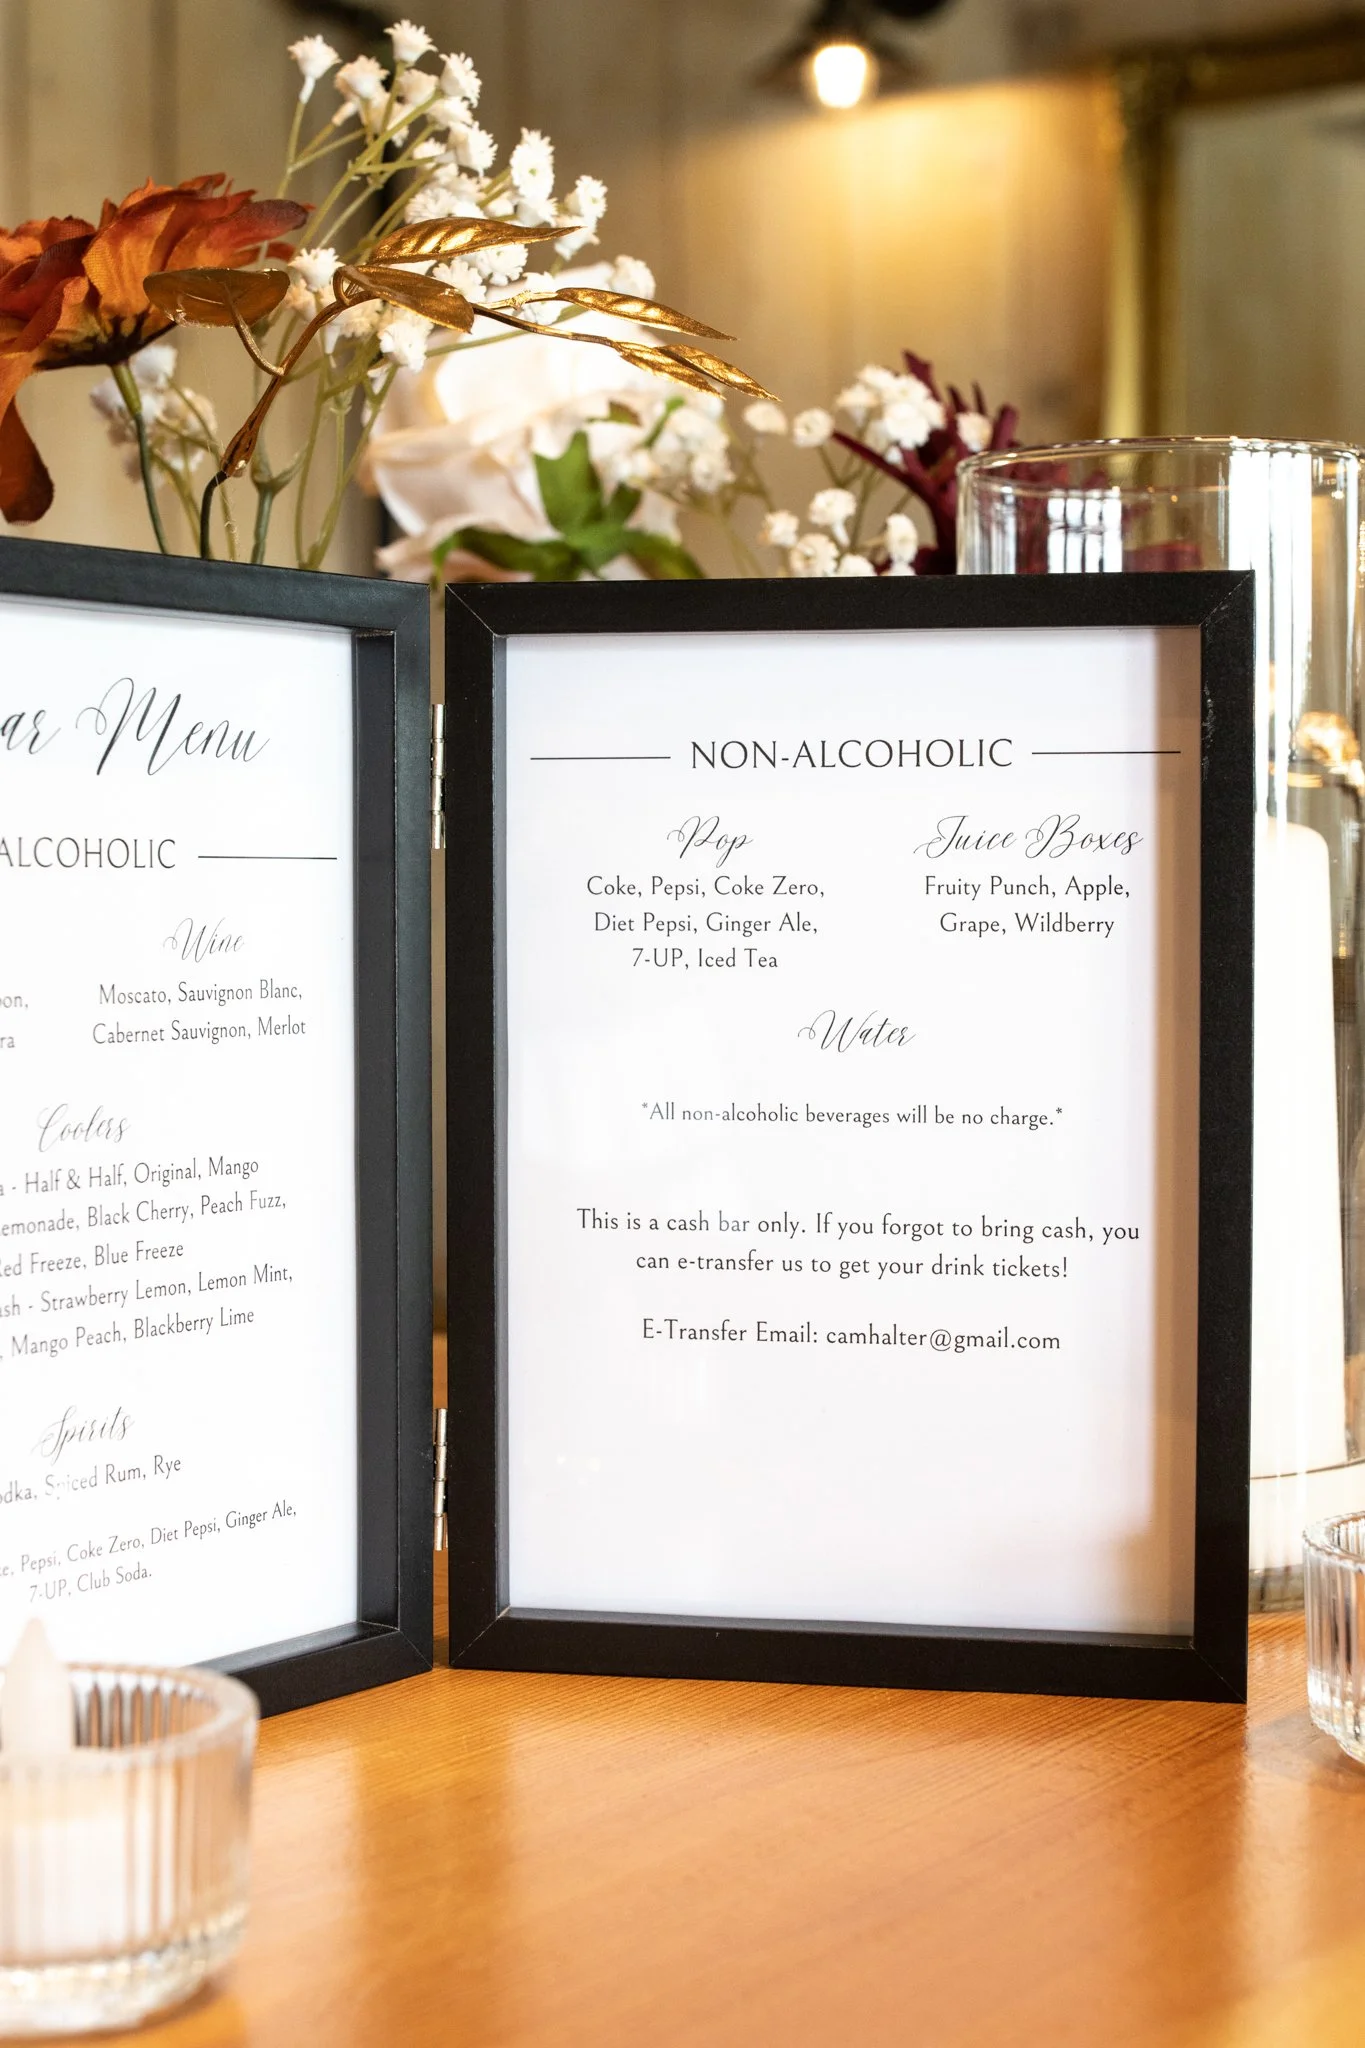 Menu
ALCOHOLIC
Wine
Moscato, Sauvignon Blanc,
Cabernet Sauvignon, Merlot
Coolers
- Half & Half, Original, Mango
Black Cherry, Peach Fuzz,
Freeze, Blue Freeze
- Strawberry Lemon, Lemon Mint,
, Mango Peach, Blackberry Lime
Spirits
Spiced Rum, Rye
Pepsi, Coke Zero, Diet Pepsi, Ginger Ale,
7-UP, Club Soda.
NON-ALCOHOLIC
Pop
Coke, Pepsi, Coke Zero,
Diet Pepsi, Ginger Ale,
7-UP, Iced Tea
Juice Boxes
Fruity Punch, Apple,
Grape, Wildberry
Water
*All non-alcoholic beverages will be no charge.*
This is a cash bar only. If you forgot to bring cash, you
can e-transfer us to get your drink tickets!
E-Transfer Email: camhalter@gmail.com